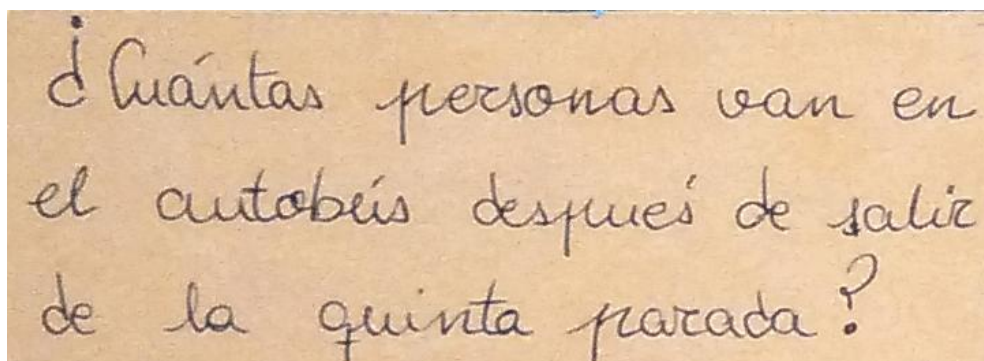 ¿Cuántas personas van en
el autobús después de salir
de la quinta parada?